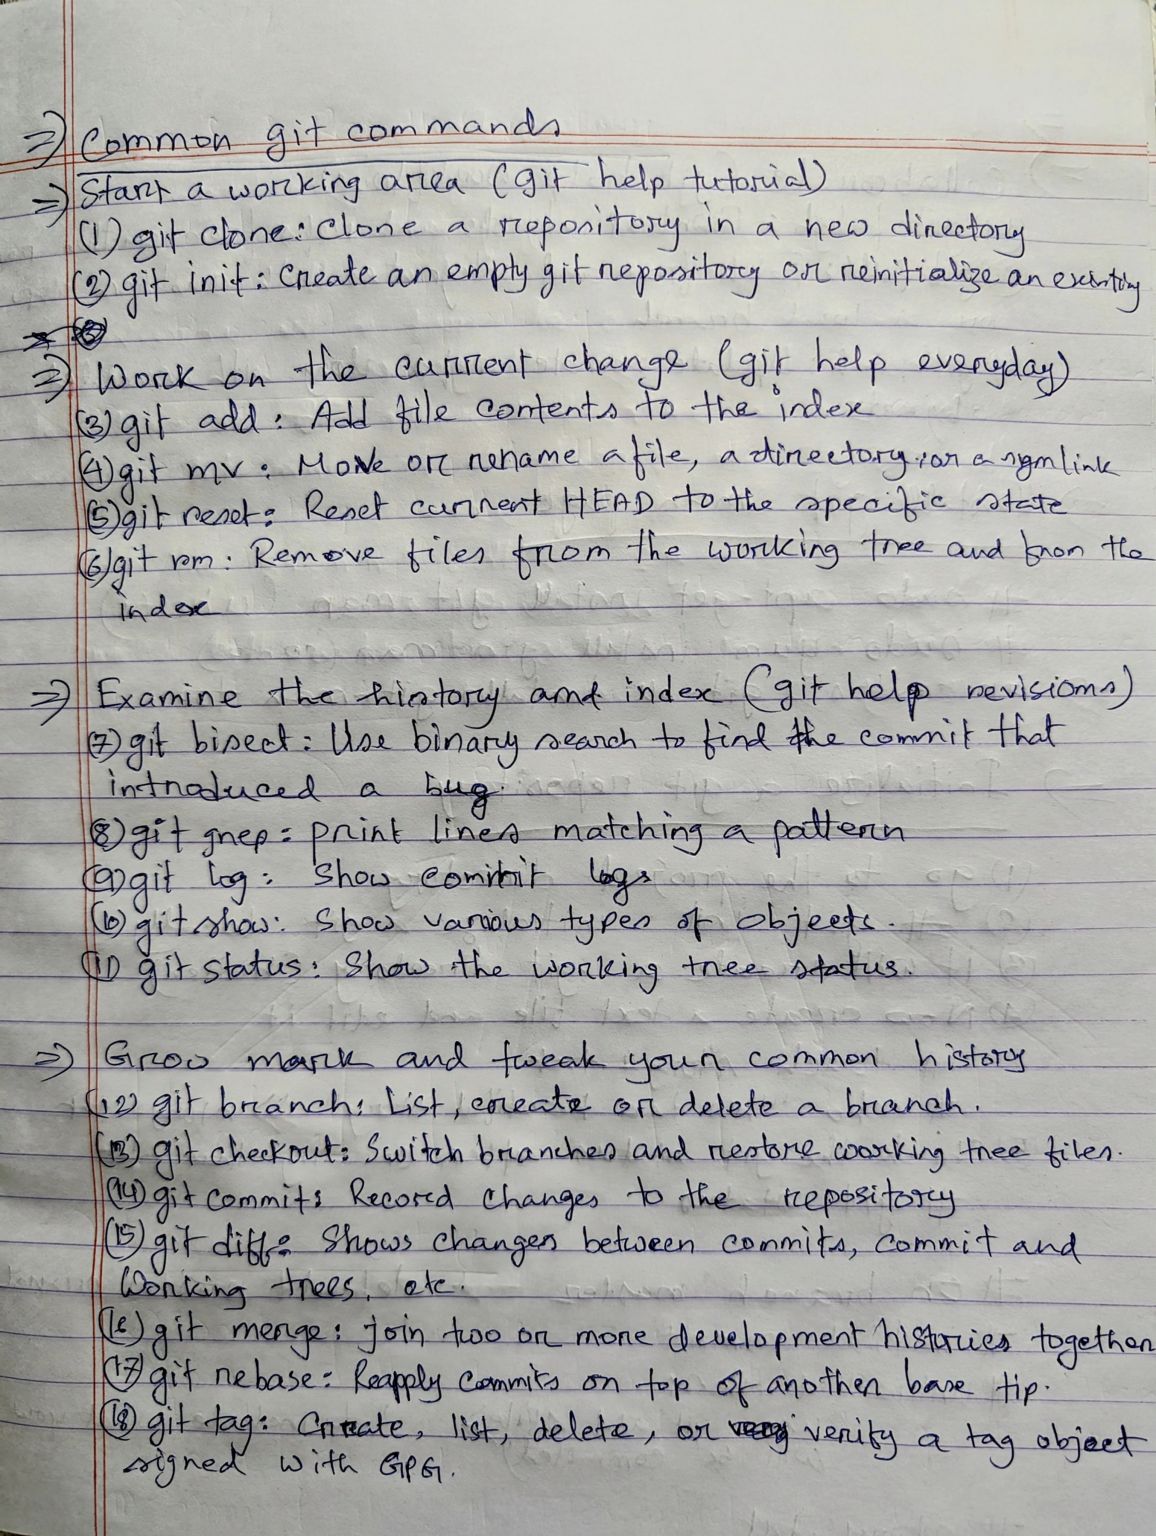 ⇒ Common git commands
⇒ Start a working area (git help tutorial)
(1) git clone: Clone a repository in a new directory
(2) git init: Create an empty git repository or reinitialize an existing
⇒ Work on the current change (git help everyday)
(3) git add: Add file contents to the index
(4) git mv: Move or rename a file, a directory, or a symlink
(5) git reset: Reset current HEAD to the specific state
(6) git rm: Remove files from the working tree and from the
index
⇒ Examine the history and index (git help revisions)
(7) git bisect: Use binary search to find the commit that
introduced a bug.
(8) git grep: print lines matching a pattern
(9) git log: Show commit logs
(10) git show: Show various types of objects.
(11) git status: Show the working tree status.
⇒ Grow mark and tweak your common history
(12) git branch: List, create or delete a branch.
(13) git checkout: Switch branches and restore working tree files.
(14) git commit: Record changes to the repository
(15) git diff: Shows changes between commits, commit and
Working trees, etc.
(16) git merge: join two or more development histories together
(17) git rebase: Reapply commits on top of another base tip.
(18) git tag: Create, list, delete, or verify a tag object
signed with GPG.